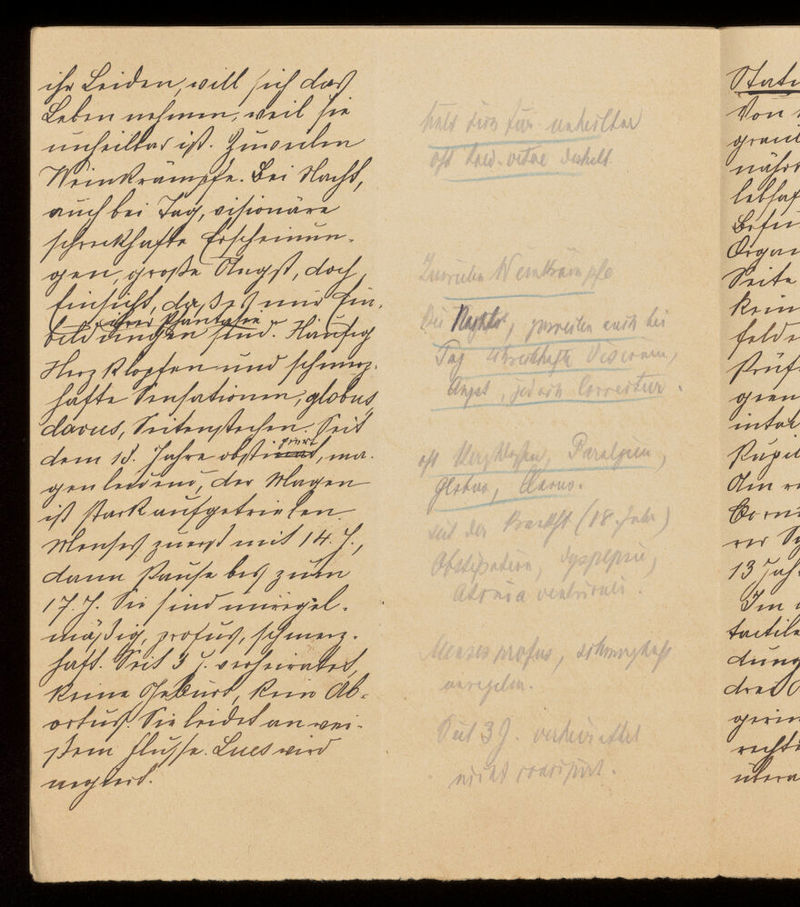 ihr Leiden, will sich das
Leben nehmen, weil sie
unheilbar ist. Zuweilen
Weinkrämpfe. Bei Nacht,
auch bei Tag, visionäre
schreckhafte Erscheinun-
gen, große Angst, doch
Einsicht, daß es nur Ein-
bildungen ihrer Phantasie sind. Häufig
Herzklopfen und schmerz-
hafte Sensationen, globus,
clavus, Seitenstechen. Seit
dem 18. Jahre obstipirt, ma-
genleidend, der Magen
ist stark aufgetrieben.
Menses zuerst mit 14 J.,
dann Pause bis zum
17. J. Sie sind unregel-
mäßig, profus, schmerz-
haft. Seit 3 J. verheiratet,
keine Geburt, kein Ab-
ortus. Sie leidet an wei-
ßem Flusse. Lues wird
negiert.
hält sich für unheilbar
oft taed. vitae
Zuweilen Weinkrämpfe
Bei Nacht, zuweilen auch bei
Tag schreckhafte Visionen,
Angst, jedoch Correctur.
oft Herzklopfen, Paralgien,
Globus, Clavus.
seit der (18. Jahr)
Obstipation, Dyspepsie,
Atonia ventriculi.
Menses profus, schmerzhaft
unregelm.
Seit 3 J. verheirathet
nicht concipirt.
Stat
Von
grau
nähr
lebhaf
Befu
Organ
Seite
kein
felde
Prüf
gien
intak
Pupil
Am
Corn
13 Jah
Im
tactile
dung
drei
gerin
recht
übera